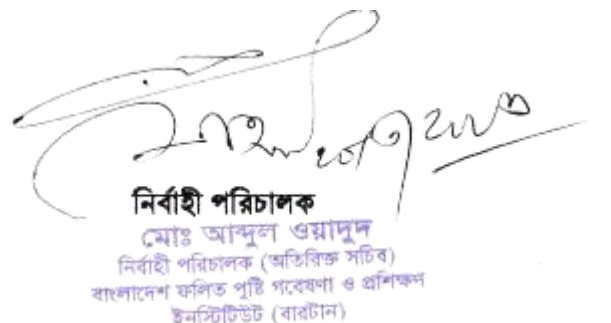 নির্বাহী পরিচালক
মোঃ আব্দুল ওয়াদুদ
নির্বাহী পরিচালক (অতিরিক্ত সচিব)
বাংলাদেশ ফলিত পুষ্টি গবেষণা ও প্রশিক্ষণ
ইনস্টিটিউট (বারটান)